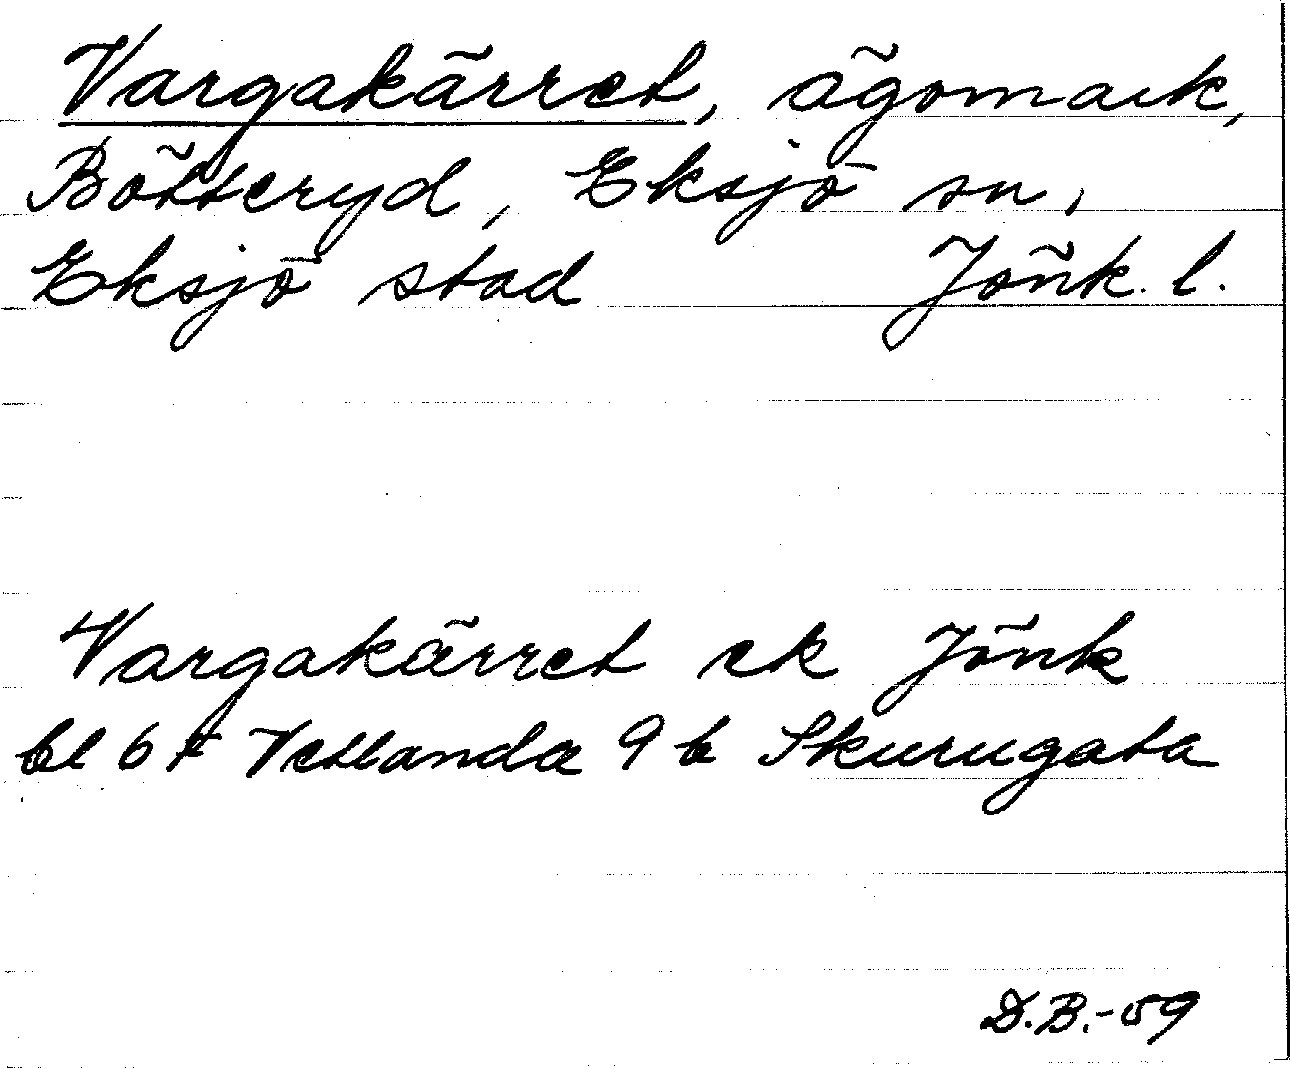 Vargakärret, ägomark,
Bötteryd, Eksjö sn,
Eksjö stad Jönk. l.
Vargakärret ek Jönk
bl 6 F Vetlanda 9 b Skurugata
D.B.-59